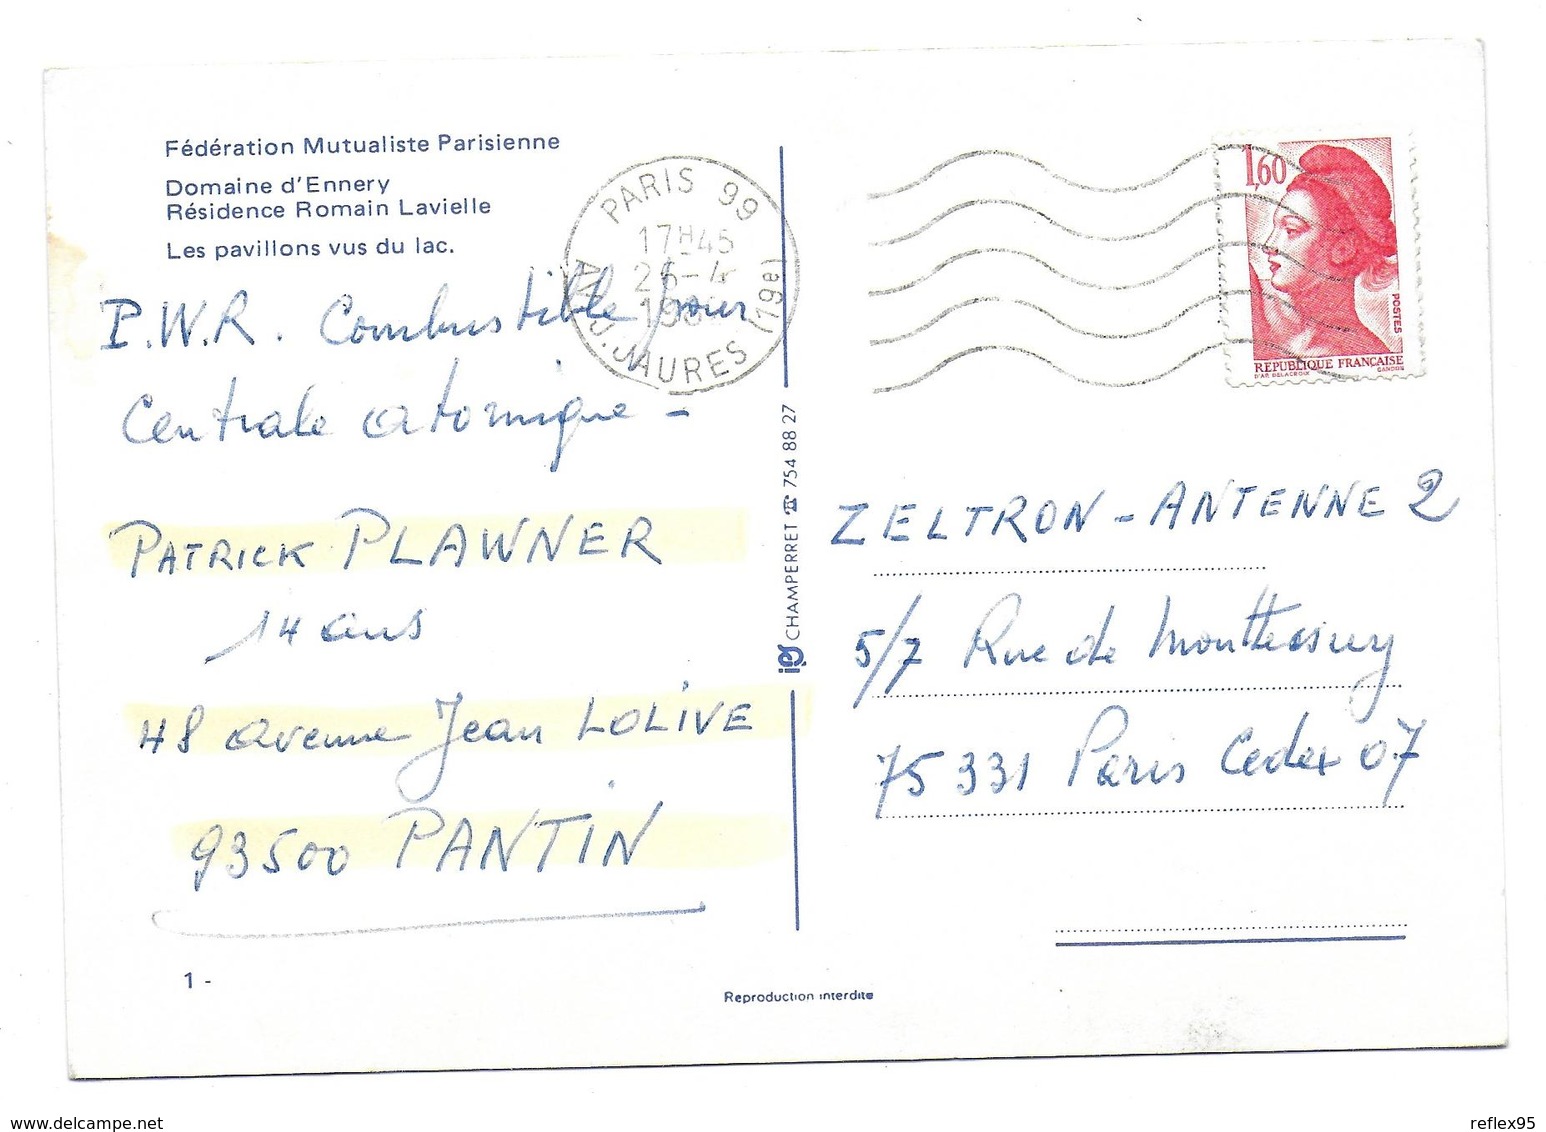 Fédération Mutualiste Parisienne
Domaine d'Ennery
Résidence Romain Lavielle
Les pavillons vus du lac.
P.W.R. Combustible pour
Centrale atomique -
PATRICK PLAWNER
14 ans
48 avenue Jean LOLIVE
93500 PANTIN
1 -
PARIS 99
17H45
-4
19
AV. J. JAURES (19e)
CHAMPERRET ☎ 754 88 27
Reproduction interdite
1,60
POSTES
REPUBLIQUE FRANÇAISE
D'AP. DELACROIX
GANDON
ZELTRON - ANTENNE 2
5/7 Rue de Monttessuy
75331 Paris Cedex 07
delcampe.net
reflex95